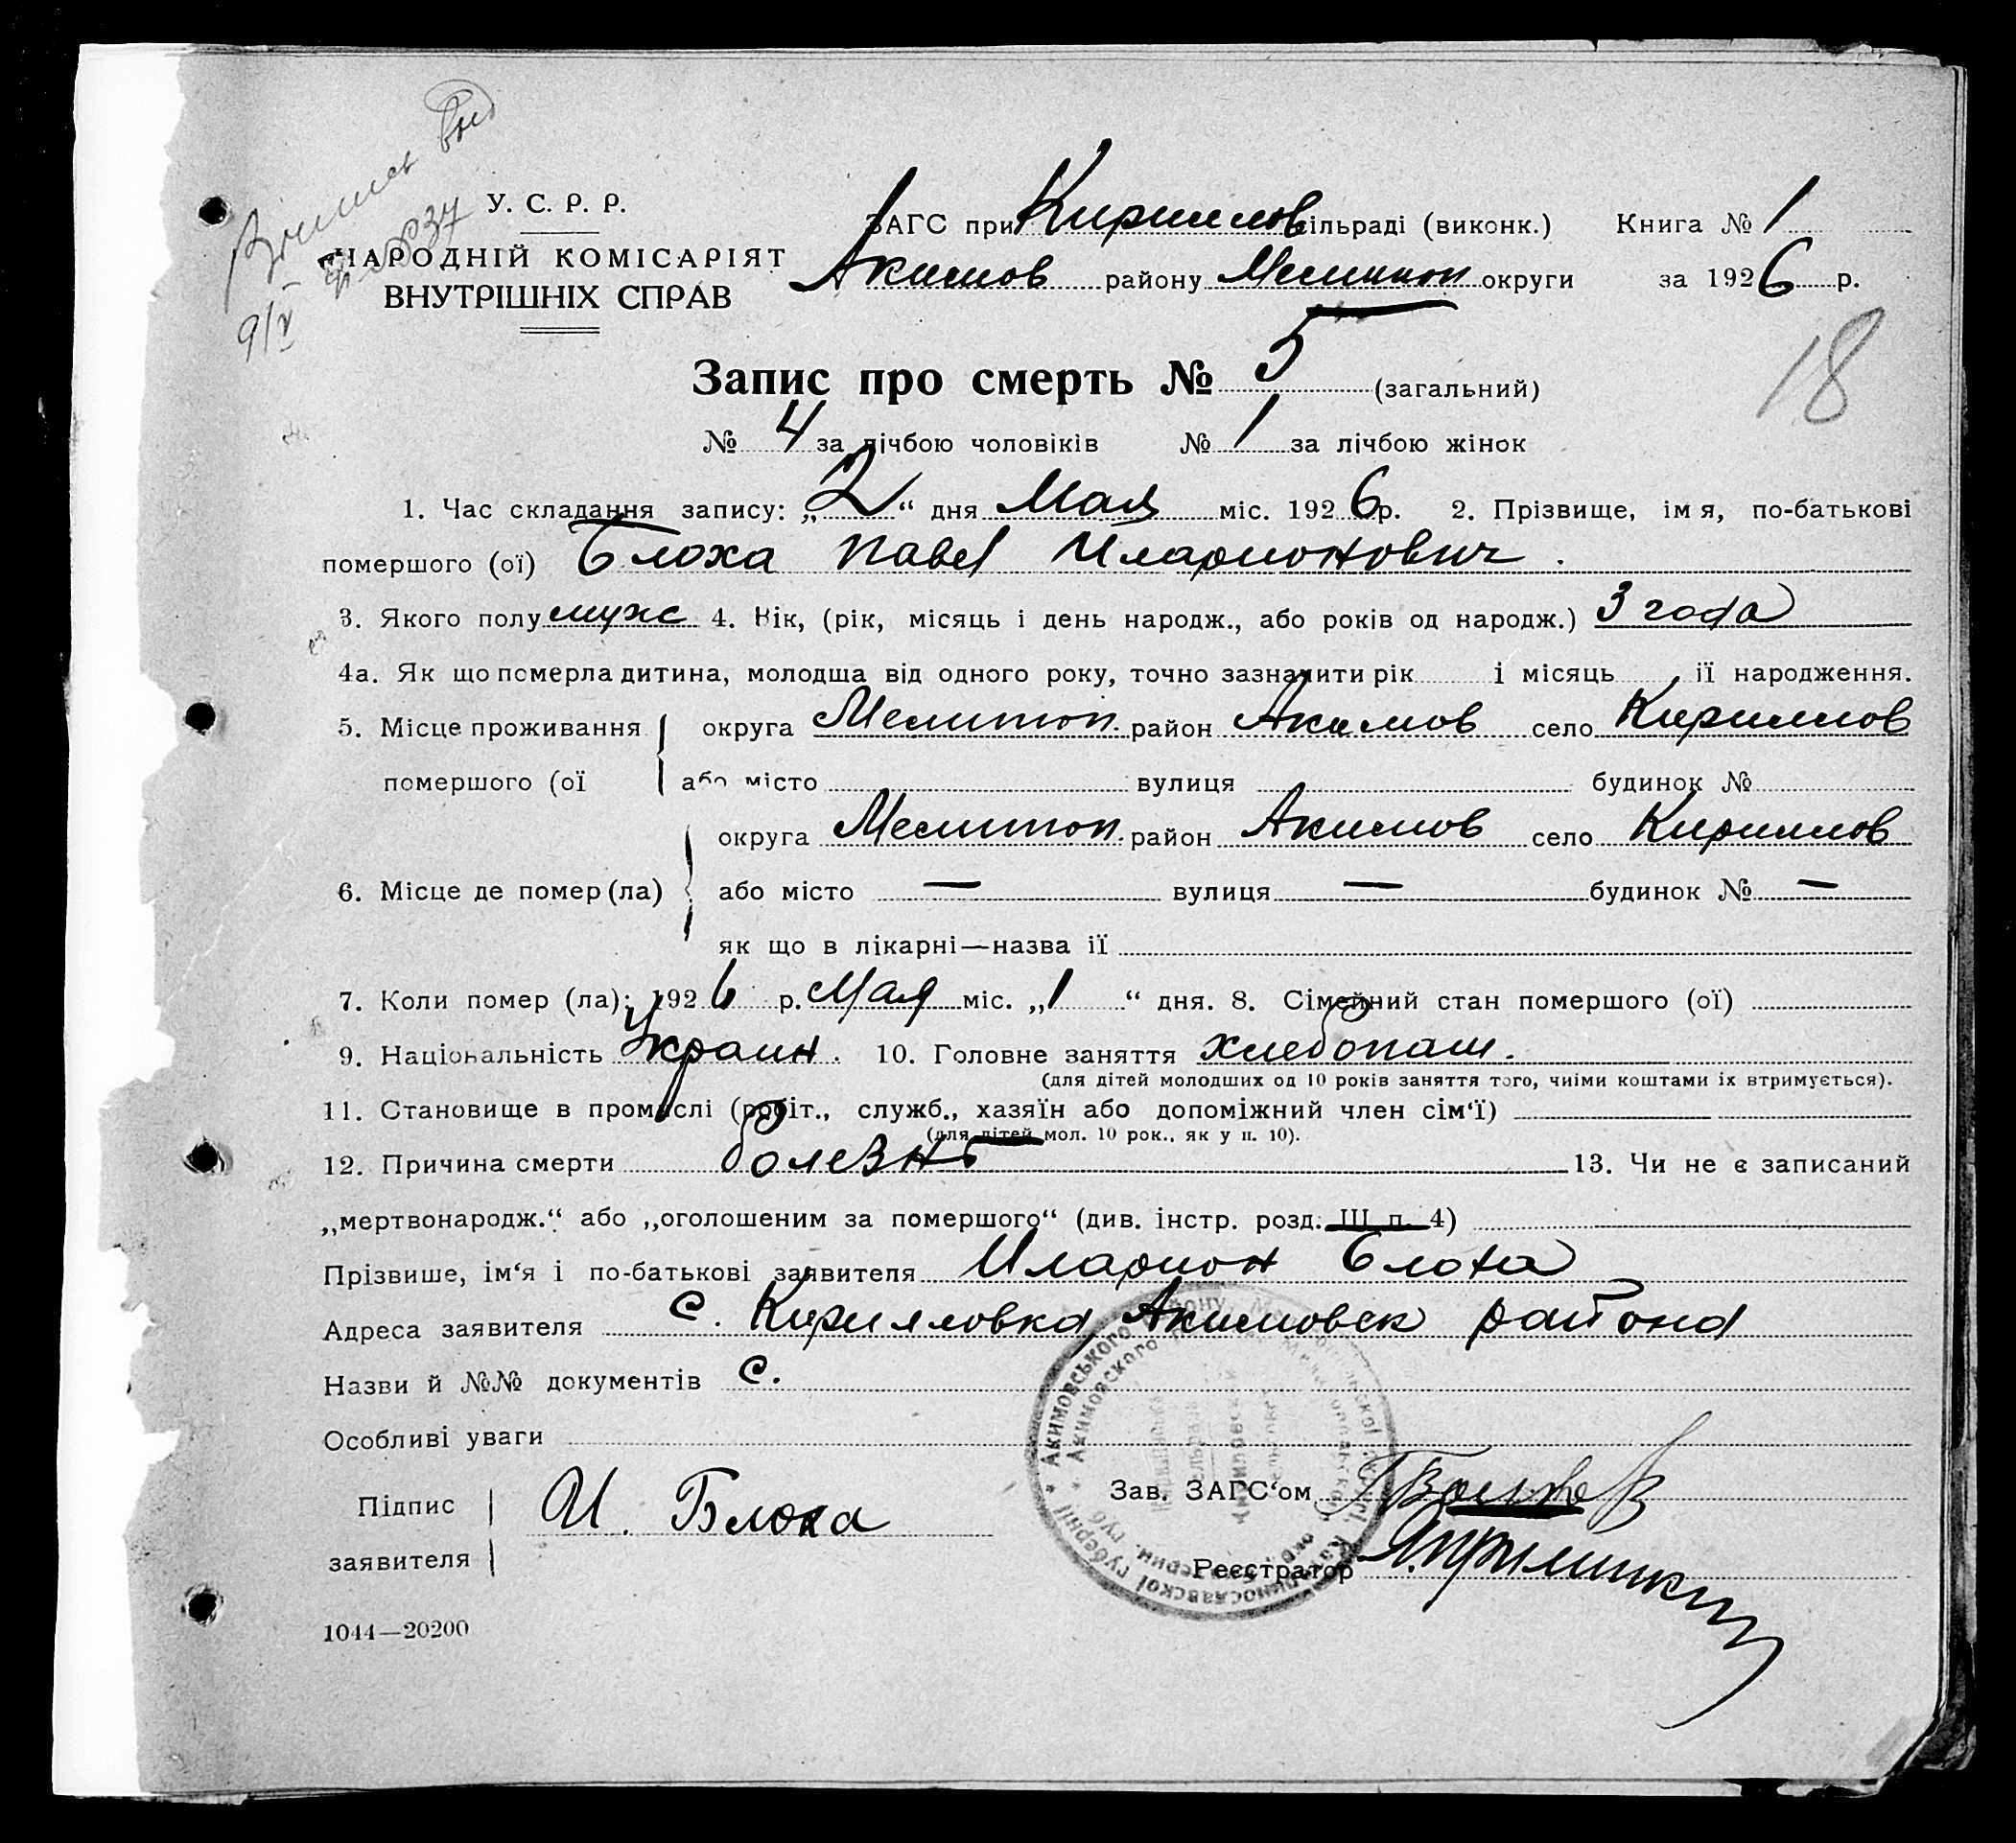 У. С. Р. Р.
НАРОДНІЙ КОМІСАРІЯТ
ВНУТРІШНІХ СПРАВ
ЗАГС при Кирилов сільраді (виконк.) Книга № 1
Акимов району Мелитоп округи за 1926 р.
18
Запис про смерть № 5 (загальний)
№ 4 за лічбою чоловіків № 1 за лічбою жінок
1. Час складання запису: „2“ дня Мая міс. 1926 р. 2. Прізвище, імя, по-батькові
помершого (ої) Блоха Павел Иларионович.
3. Якого полу муж 4. Вік, (рік, місяць і день народж., або років од народж.) 3 года
4а. Як що померла дитина, молодша від одного року, точно зазначити рік і місяць її народження.
5. Місце проживання округа Мелитоп. район Акимов село Кириллов
помершого (ої або місто вулиця будинок №
округа Мелитоп. район Акимов село Кириллов
6. Місце де помер (ла) або місто — вулиця — будинок № —
як що в лікарні—назва її
7. Коли помер (ла): 1926 р. Мая міс. „1“ дня. 8. Сімейний стан помершого (ої)
9. Національність Украин. 10. Головне заняття хлебопаш.
(для дітей молодших од 10 років заняття того, чиїми коштами їх втримується).
11. Становище в промислі (робіт., служб., хазяїн або допоміжний член сім‘ї)
(для дітей мол. 10 рок., як у п. 10).
12. Причина смерти болезнь 13. Чи не є записаний
„мертвонародж.“ або „оголошеним за помершого“ (див. інстр. розд. III п. 4)
Прізвише, ім‘я і по-батькові заявителя Иларион Блоха
Адреса заявителя с. Кирилловка Акимовск района
Назви й №№ документів с.
Особливі уваги
Підпис
заявителя И. Блоха
Зав. ЗАГС‘ом
Реєстратор
1044—20200